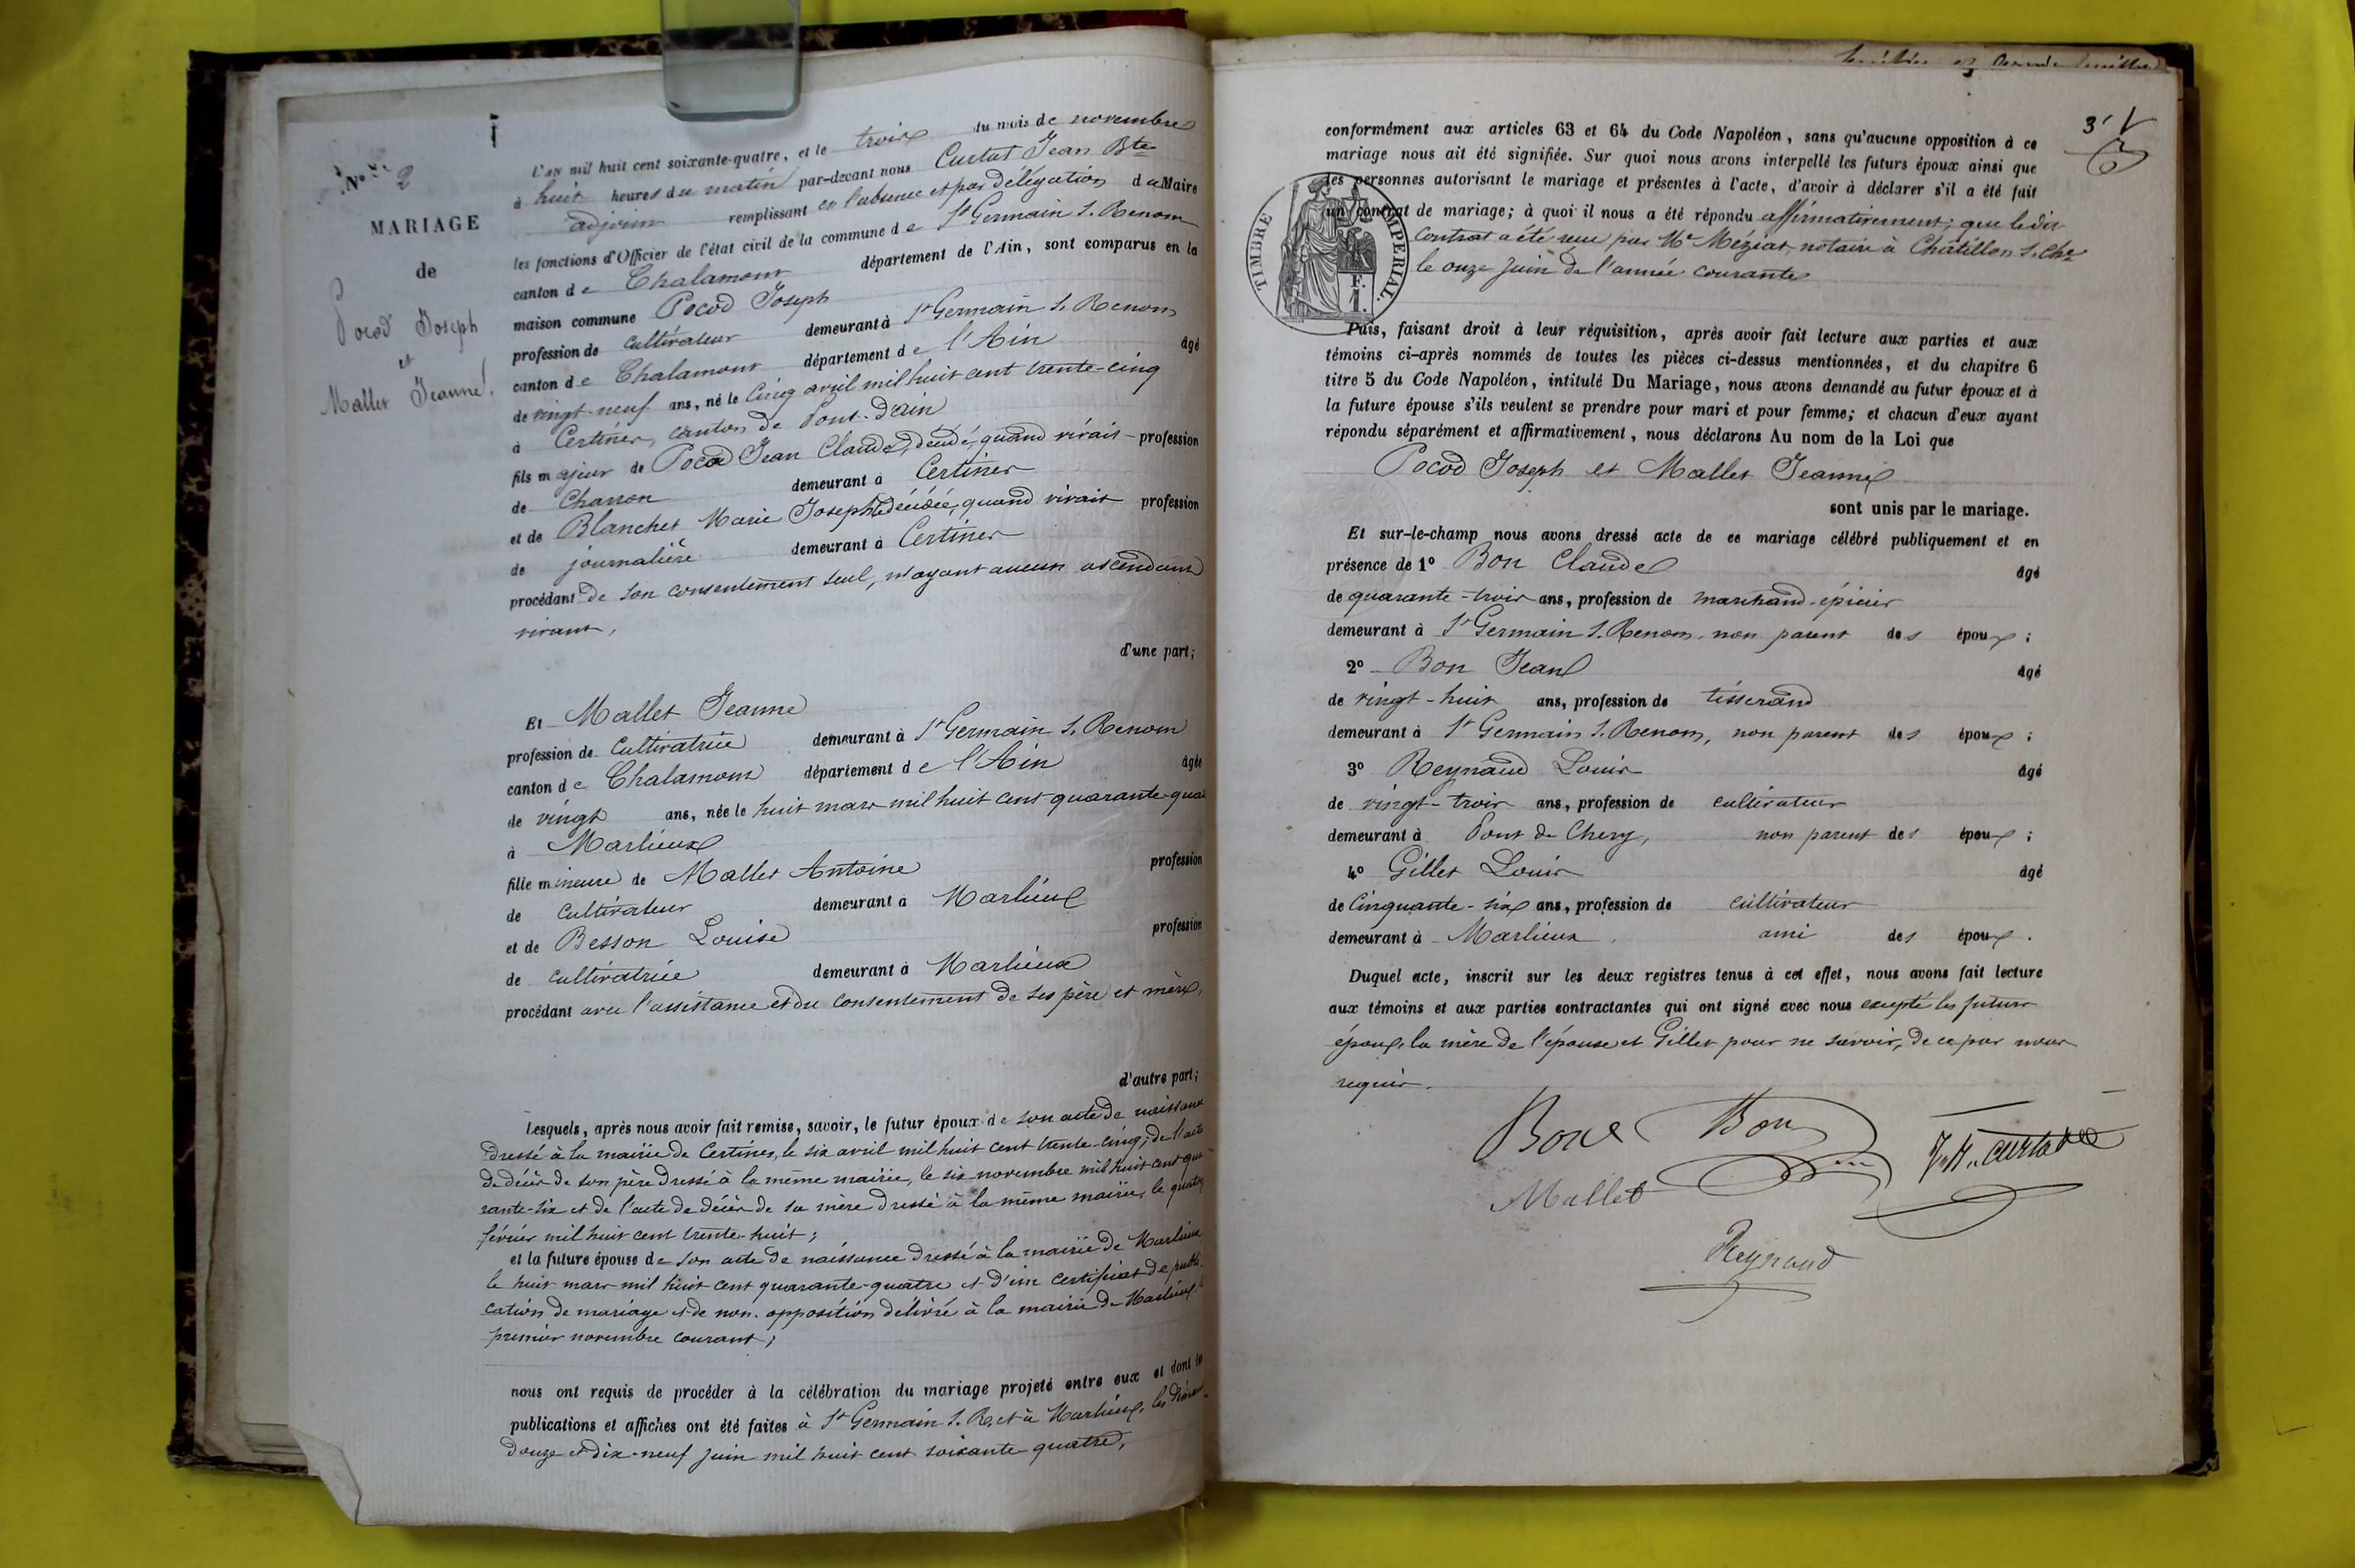 N° 2
MARIAGE
de
Pocod Joseph
et
Mallet Jeanne
L'AN mil huit cent soixante-quatre, et le trois du mois de novembre
à huit heures du matin par-devant nous Curtat Jean Bte
adjoint remplissant en l'absence et par délégation du Maire
les fonctions d'Officier de l'état civil de la commune de St Germain S. Renom
canton de Chalamont département de l'Ain, sont comparus en la
maison commune Pocod Joseph
profession de cultivateur demeurant à St Germain S. Renom
canton de Chalamont département de l'Ain âgé
de vingt-neuf ans, né le cinq avril mil huit cent trente-cinq
à Certines, canton de Pont-d'ain
fils majeur de Pocod Jean Claude, décédé, quand vivait profession
de Charron demeurant à Certines
et de Blanchet Marie Josephte décédée, quand vivait profession
de journalière demeurant à Certines
procédant de son consentement seul, n'ayant aucun ascendant
vivant,
d'une part;
Et Mallet Jeanne
profession de Cultivatrice demeurant à St Germain S. Renom
canton de Chalamont département de l'Ain âgée
de vingt ans, née le huit mars mil huit cent quarante-quat
à Marlieux
fille mineure de Mallet Antoine profession
de cultivateur demeurant à Marlieux
et de Besson Louise profession
de cultivatrice demeurant à Marlieux
procédant avec l'assistance et du consentement de ses père et mère,
d'autre part;
Lesquels, après nous avoir fait remise, savoir, le futur époux de son acte de naissance
dressé à la mairie de Certines, le six avril mil huit cent trente-cinq; de l'acte
de décès de son père dressé à la même mairie, le six novembre mil huit cent qua
rante-six et de l'acte de décès de sa mère dressé à la même mairie, le quatre
février mil huit cent trente-huit;
et la future épouse de son acte de naissance dressé à la mairie de Marlieux
le huit mars mil huit cent quarante-quatre et d'un certificat de publi-
cation de mariage et de non-opposition délivré à la mairie de Marlieux le
premier novembre courant;
nous ont requis de procéder à la célébration du mariage projeté entre eux et dont les
publications et affiches ont été faites à St Germain S. R. et à Marlieux, les diman-
douze et dix-neuf juin mil huit cent soixante quatre,
3
conformément aux articles 63 et 64 du Code Napoléon, sans qu'aucune opposition à ce
mariage nous ait été signifiée. Sur quoi nous avons interpellé les futurs époux ainsi que
les personnes autorisant le mariage et présentes à l'acte, d'avoir à déclarer s'il a été fait
un contrat de mariage; à quoi il nous a été répondu affirmativement; que ledit
contrat a été reçu par Me Méziat, notaire à Châtillon S. Che
le onze juin de l'année courante
TIMBRE IMPERIAL.
F.
1.
Puis, faisant droit à leur réquisition, après avoir fait lecture aux parties et aux
témoins ci-après nommés de toutes les pièces ci-dessus mentionnées, et du chapitre 6
titre 5 du Code Napoléon, intitulé Du Mariage, nous avons demandé au futur époux et à
la future épouse s'ils veulent se prendre pour mari et pour femme; et chacun d'eux ayant
répondu séparément et affirmativement, nous déclarons Au nom de la Loi que
Pocod Joseph et Mallet Jeanne
sont unis par le mariage.
Et sur-le-champ nous avons dressé acte de ce mariage célébré publiquement et en
présence de 1° Bon Claude âgé
de quarante-trois ans, profession de marchand-épicier
demeurant à St Germain S. Renom, non parent des époux;
2° Bon Jean âgé
de vingt-huit ans, profession de tisserand
demeurant à St Germain S. Renom, non parent des époux;
3° Reynaud Louis âgé
de vingt-trois ans, profession de cultivateur
demeurant à Pont de Chery, non parent des époux;
4° Gillet Louis âgé
de Cinquante-six ans, profession de cultivateur
demeurant à Marlieux ami des époux.
Duquel acte, inscrit sur les deux registres tenus à cet effet, nous avons fait lecture
aux témoins et aux parties contractantes qui ont signé avec nous excepté les futurs
époux, la mère de l'épouse et Gillet pour ne savoir, de ce par nous
requis.
Bon Bon
J. B. Curtat
Mallet
Reynaud